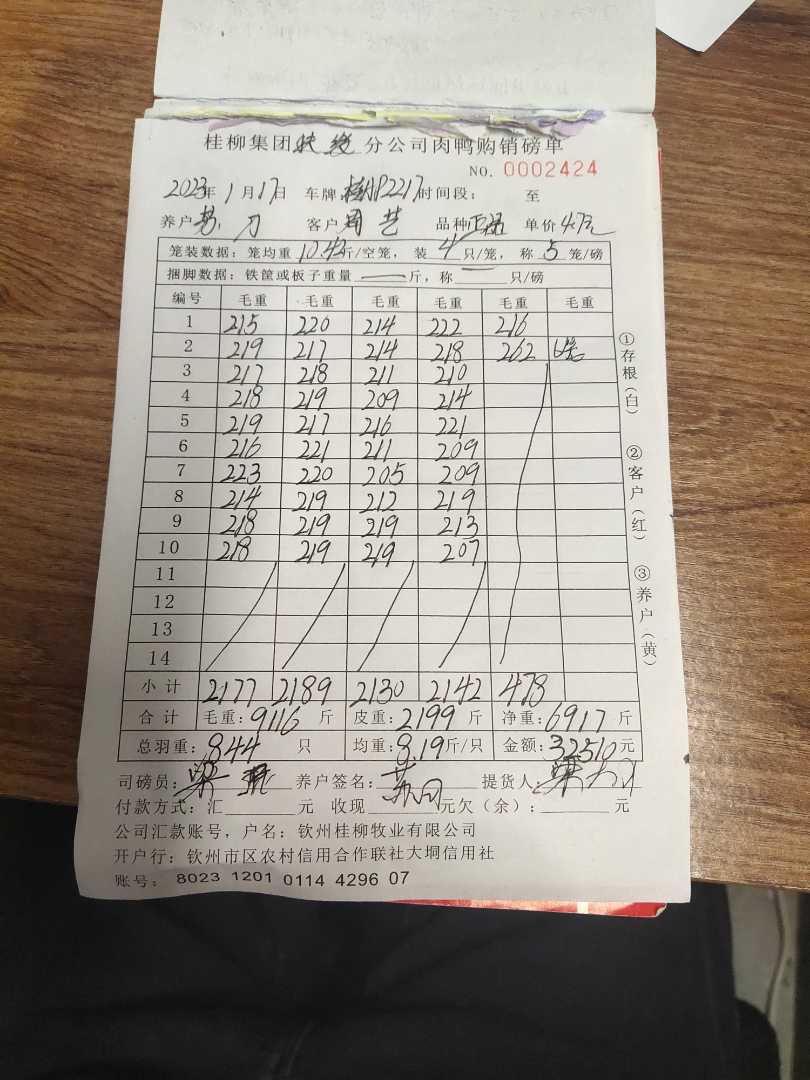 桂柳集团 分公司肉鸭购销磅单
NO. 0002424
2023年1月17日 车牌: P2217 时间段: 至
养户 刀 客户 周艺 品种正品 单价4.7元
笼装数据: 笼均重10.42斤/空笼, 装4只/笼, 称5笼/磅
捆脚数据: 铁筐或板子重量 — 斤, 称 只/磅
编号 毛重 毛重 毛重 毛重 毛重 毛重
1 215 220 214 222 216
2 219 217 214 218 262 6笼
3 217 218 211 210
4 218 219 209 214
5 219 217 216 221
6 216 221 211 209
7 223 220 205 209
8 214 219 212 219
9 218 219 219 213
10 218 219 219 207
11
12
13
14
小计 2177 2189 2130 2142 478
合计 毛重: 9116 斤 皮重: 2199 斤 净重: 6917 斤
总羽重: 844 只 均重: 8.19斤/只 金额: 32510元
司磅员: 梁 养户签名: 提货人: 梁
付款方式: 汇 元 收现 元欠(余): 元
公司汇款账号, 户名: 钦州桂柳牧业有限公司
开户行: 钦州市区农村信用合作联社大垌信用社
账号: 8023 1201 0114 4296 07
①存根(白) ②客户(红) ③养户(黄)